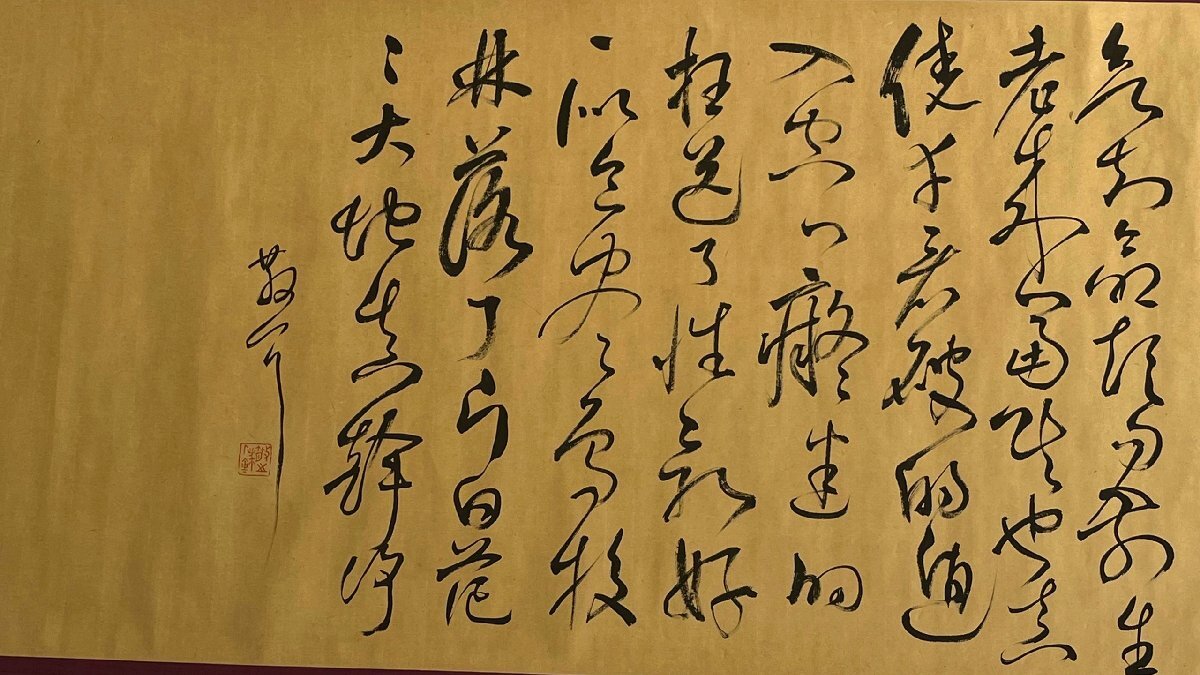 欲知命短問前生
老來富貴也真
僥幸看破的遁
入空門癡迷的
枉送了性命好
一似食盡鳥投
林落了片白茫
々大地真幹净